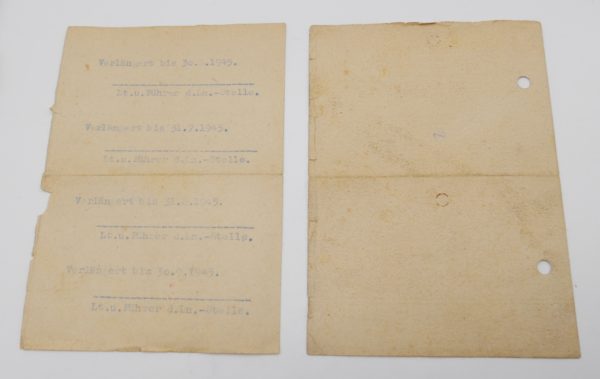 Verlängert bis 30.6.1945.
Lt.u.Führer d.Ln.-Stelle.
Verlängert bis 31.7.1945.
Lt.u.Führer d.Ln.-Stelle.
Verlängert bis 31.8.1945.
Lt.u.Führer d.Ln.-Stelle.
Verlängert bis 30.9.1945.
Lt.u.Führer d.Ln.-Stelle.